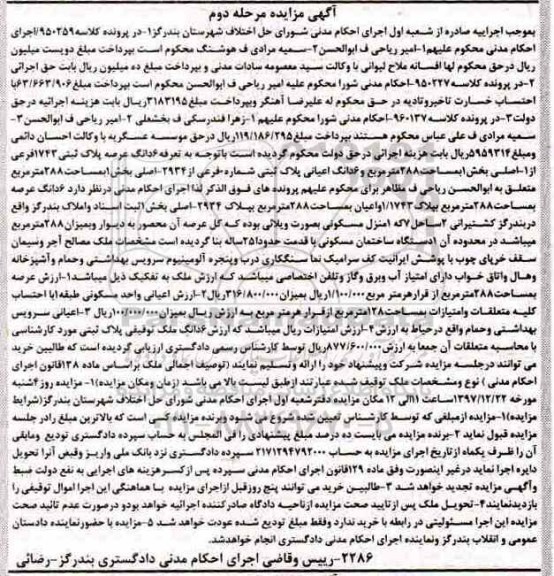 آگهی مزایده مرحله دوم
بموجب اجراییه صادره از شعبه اول اجرای احکام مدنی شورای حل اختلاف شهرستان بندرگز۱-در پرونده کلاسه۹۵۰۲۵۹/اجرای
احکام مدنی محکوم علیهم۱-امیر ریاحی ف ابوالحسن۲-سمیه مرادی ف هوشنگ محکوم است بپرداخت مبلغ دویست میلیون
ریال درحق محکوم لها افسانه ملاح لیوانی با وکالت سید معصومه سادات مدنی و بپرداخت مبلغ ده میلیون ریال بابت حق اجرائی
۲-در پرونده کلاسه۹۵۰۲۲۷-احکام مدنی شورا محکوم علیه امیر ریاحی ف ابوالحسن محکوم است بپرداخت مبلغ۶۳/۶۶۳/۹۰۶با
احتساب خسارت تاخیروتادیه در حق محکوم له علیرضا آهنگر وبپرداخت مبلغ۳۱۸۳۱۹۵ریال بابت هزینه اجرائیه درحق
دولت۳-در پرونده کلاسه۹۶۰۱۳۷-احکام مدنی شورا محکوم علیهم ۱-زهرا فندرسکی ف بخشعلی ۲-امیر ریاحی ف ابوالحسن۳-
سمیه مرادی ف علی عباس محکوم هستند بپرداخت مبلغ۱۱۹/۱۸۶/۲۹۵ریال درحق موسسه عسگریه با وکالت احسان دائمی
ومبلغ۵۹۵۹۳۱۴ریال بابت هزینه اجرائی درحق دولت محکوم گردیده است باتوجه به تعرفه۶دانگ عرصه پلاک ثبتی ۱۷۴۳فرعی
از۱-اصلی بخش۱بمساحت۲۸۸مترمربع و۶دانگ اعیانی پلاک ثبتی شماره-فرعی از۲۹۳۴-اصلی بخش۱بمساحت۲۸۸مترمربع
متعلق به ابوالحسن ریاحی ف مظاهر برای محکوم علیهم پرونده های فوق الذکر لذا اجرای احکام مدنی درنظر دارد ۶دانگ عرصه
بمساحت۲۸۸مترمربع بپلاک ۱/۱۷۴۳واعیان بمساحت۲۸۸مترمربع بپلاک ۲۹۳۴-اصلی بخش۱ثبت اسناد واملاک بندرگز واقع
دربندرگز کشتیرانی ۲ساحل۷که ۱منزل مسکونی بصورت ویلائی بوده که کل عرصه آن محصور به دیوار وبمیزان۲۸۸مترمربع
میباشد در محدوده آن ۱دستگاه ساختمان مسکونی با قدمت حدودا۲۵ساله بنا گردیده است مشخصات ملک مصالح آجر وسیمان
سقف خرپای چوب با پوشش ایرانیت کف سرامیک نما سنگکاری درب وپنجره آلومینیوم سرویس بهداشتی وحمام وآشپزخانه
وهال واتاق خواب دارای امتیاز آب وبرق وگاز وتلفن اختصاصی میباشد که ارزش ملک به تفکیک ذیل میباشد۱-ارزش عرصه
بمساحت۲۸۸مترمربع از قرارهرمتر مربع۱/۱۰۰/۰۰۰ریال بمیزان۳۱۶/۸۰۰/۰۰۰ریال۲-ارزش اعیانی واحد مسکونی طبقه۱با احتساب
کلیه متعلقات وامتیازات بمساحت۱۲۸مترمربع ازقرار هرمتر مربع به ارزش ریال بمیزان ۰۰۰/۰۰۰/ریال ۳-اعیانی سرویس
بهداشتی وحمام واقع درحیاط به ارزش ۴-ارزش امتیازات ریال میباشد که ارزش۶دانگ ملک توقیفی پلاک ثبتی مورد کارشناسی
با محاسبه متعلقات آن جمعا به ارزش۸۷۷/۶۰۰/۰۰۰ریال توسط کارشناس رسمی دادگستری ارزیابی گردیده است که طالبین خرید
می توانند درجلسه مزایده شرکت وپیشنهاد خود را ارائه وتسلیم نمایند (توصیف اجمالی ملک براساس ماده ۱۳۸قانون اجرای
احکام مدنی ) نوع ومشخصات ملک توقیف شده عبارتند ازطبق لیست بالا می باشد (زمان ومکان مزایده)۱-مزایده روز ۴شنبه
مورخه ۱۳۹۷/۱۲/۲۲ساعت ۱۱الی ۱۲ مکان مزایده دفترشعبه اول اجرای احکام مدنی شورای حل اختلاف شهرستان بندرگز(شرایط
مزایده)۱-مزایده ازمبلغی که توسط کارشناس تعیین شده شروع می شود وبرنده مزایده کسی است که بالاترین مبلغ رادر جلسه
مزایده قبول نماید ۲-برنده مزایده می بایست ده درصد مبلغ پیشنهادی را فی المجلس به حساب سپرده دادگستری تودیع ومابقی
آن را ظرف یکماه ازتاریخ اجرای مزایده به حساب ۲۱۷۱۲۹۴۷۹۲۰۰۰ سپرده دادگستری نزد بانک ملی واریز وقبض آنرا تحویل
دایره اجرا نماید درغیر اینصورت وفق ماده ۱۲۹قانون اجرای احکام مدنی سپرده پس ازکسرهزینه های اجرایی به نفع دولت ضبط
وآگهی مزایده تجدید خواهد شد ۳-طالبین خرید می توانند پنج روزقبل ازاجرای مزایده با هماهنگی این اجرا اموال توقیفی را
بازدیدنمایند۴-تحویل ملک پس ازتایید صحت مزایده ازناحیه دادگاه صادرکننده اجرائیه خواهد بودو درصورت عدم تائید صحت
مزایده این اجرا مسئولیتی در رابطه با خرید ندارد وفقط مبلغ تودیع شده عودت خواهد شد ۵-مزایده با حضورنماینده دادستان
عمومی و انقلاب بندرگز ونماینده اجرای احکام مدنی دادگستری انجام خواهدشد.
۲۲۸۶-رییس وقاضی اجرای احکام مدنی دادگستری بندرگز-رضائی